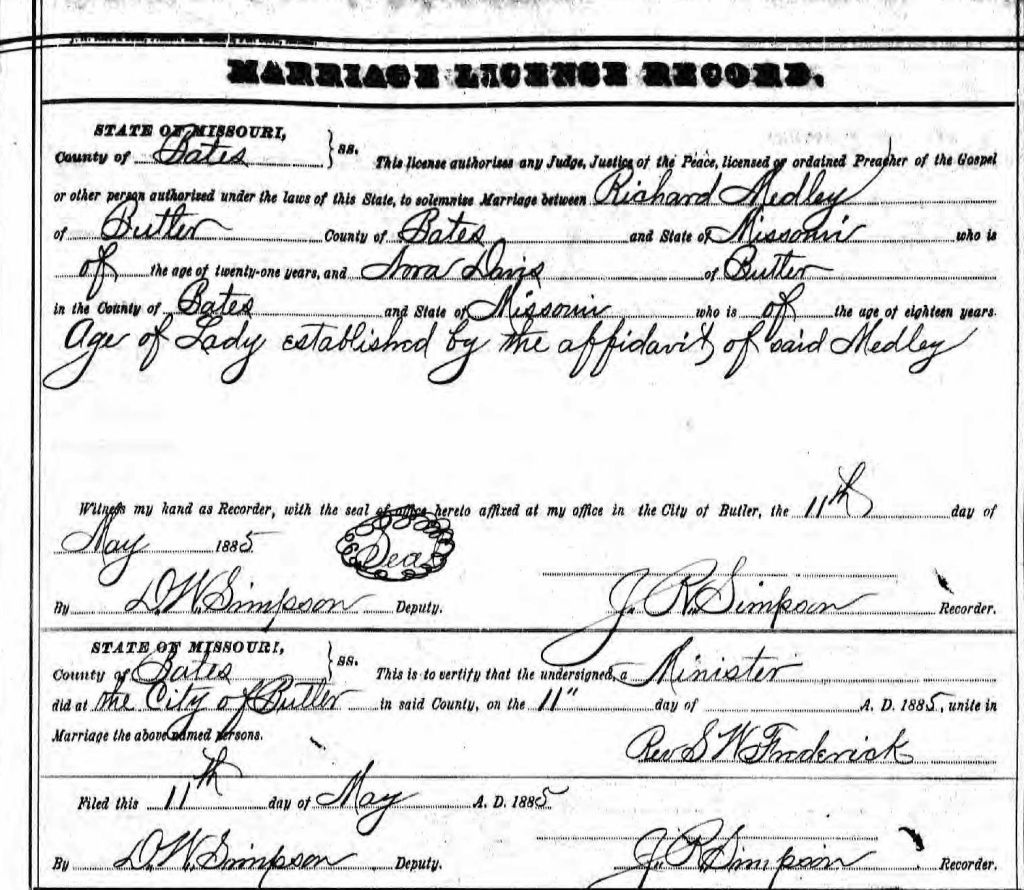 MARRIAGE LICENSE RECORD.
STATE OF MISSOURI,
County of Bates } ss. This license authorises any Judge, Justice of the Peace, licensed or ordained Preacher of the Gospel
or other person authorised under the laws of this State, to solemnise Marriage between Richard Medley
of Butler County of Bates and State of Missouri who is
of the age of twenty-one years, and Anna Davis of Butler
in the County of Bates and State of Missouri who is of the age of eighteen years.
Age of Lady established by the affidavit of said Medley
Witness my hand as Recorder, with the seal of office hereto affixed at my office in the City of Butler, the 11th day of
May 1885 Seal
By D. W. Simpson Deputy. J. R. Simpson Recorder.
STATE OF MISSOURI,
County of Bates } ss. This is to certify that the undersigned, a Minister
did at the City of Butler in said County, on the 11" day of A. D. 1885, unite in
Marriage the above named persons.
Rev S W Frederick
Filed this 11th day of May A. D. 1885
By D. W. Simpson Deputy. J. R. Simpson Recorder.